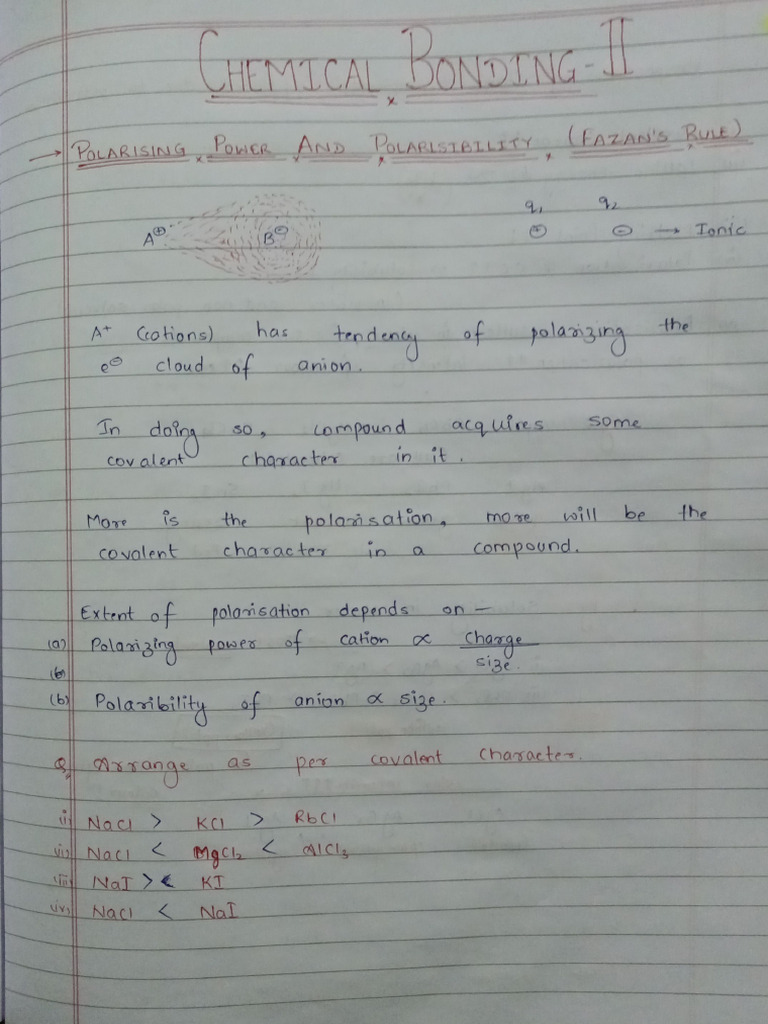 CHEMICAL BONDING-II
→ POLARISING POWER AND POLARISIBILITY (FAZAN'S RULE)
q₁ q₂
A⊕ B⊖ ⊕ ⊖ → Ionic
A⁺ (cations) has tendency of polarizing the
e⊖ cloud of anion.
In doing so, compound acquires some
covalent character in it.
More is the polarisation, more will be the
covalent character in a compound.
Extent of polarisation depends on –
(a) Polarizing power of cation ∝ Charge
size.
(b)
(b) Polaribility of anion ∝ size.
Q. Arrange as per covalent character.
(i) NaCl > KCl > RbCl
(ii) NaCl < MgCl₂ < AlCl₃
(iii) NaI > KI
(iv) NaCl < NaI